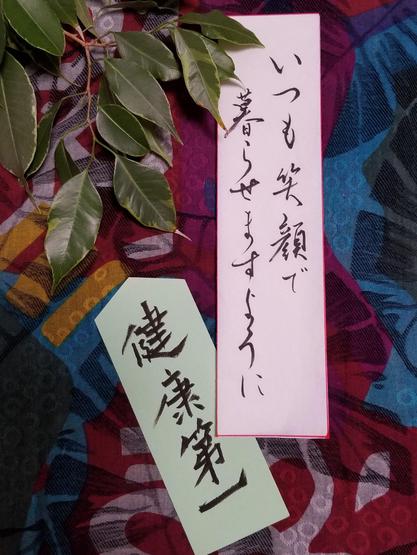 いつも笑顔で
暮らせますように
健康第一